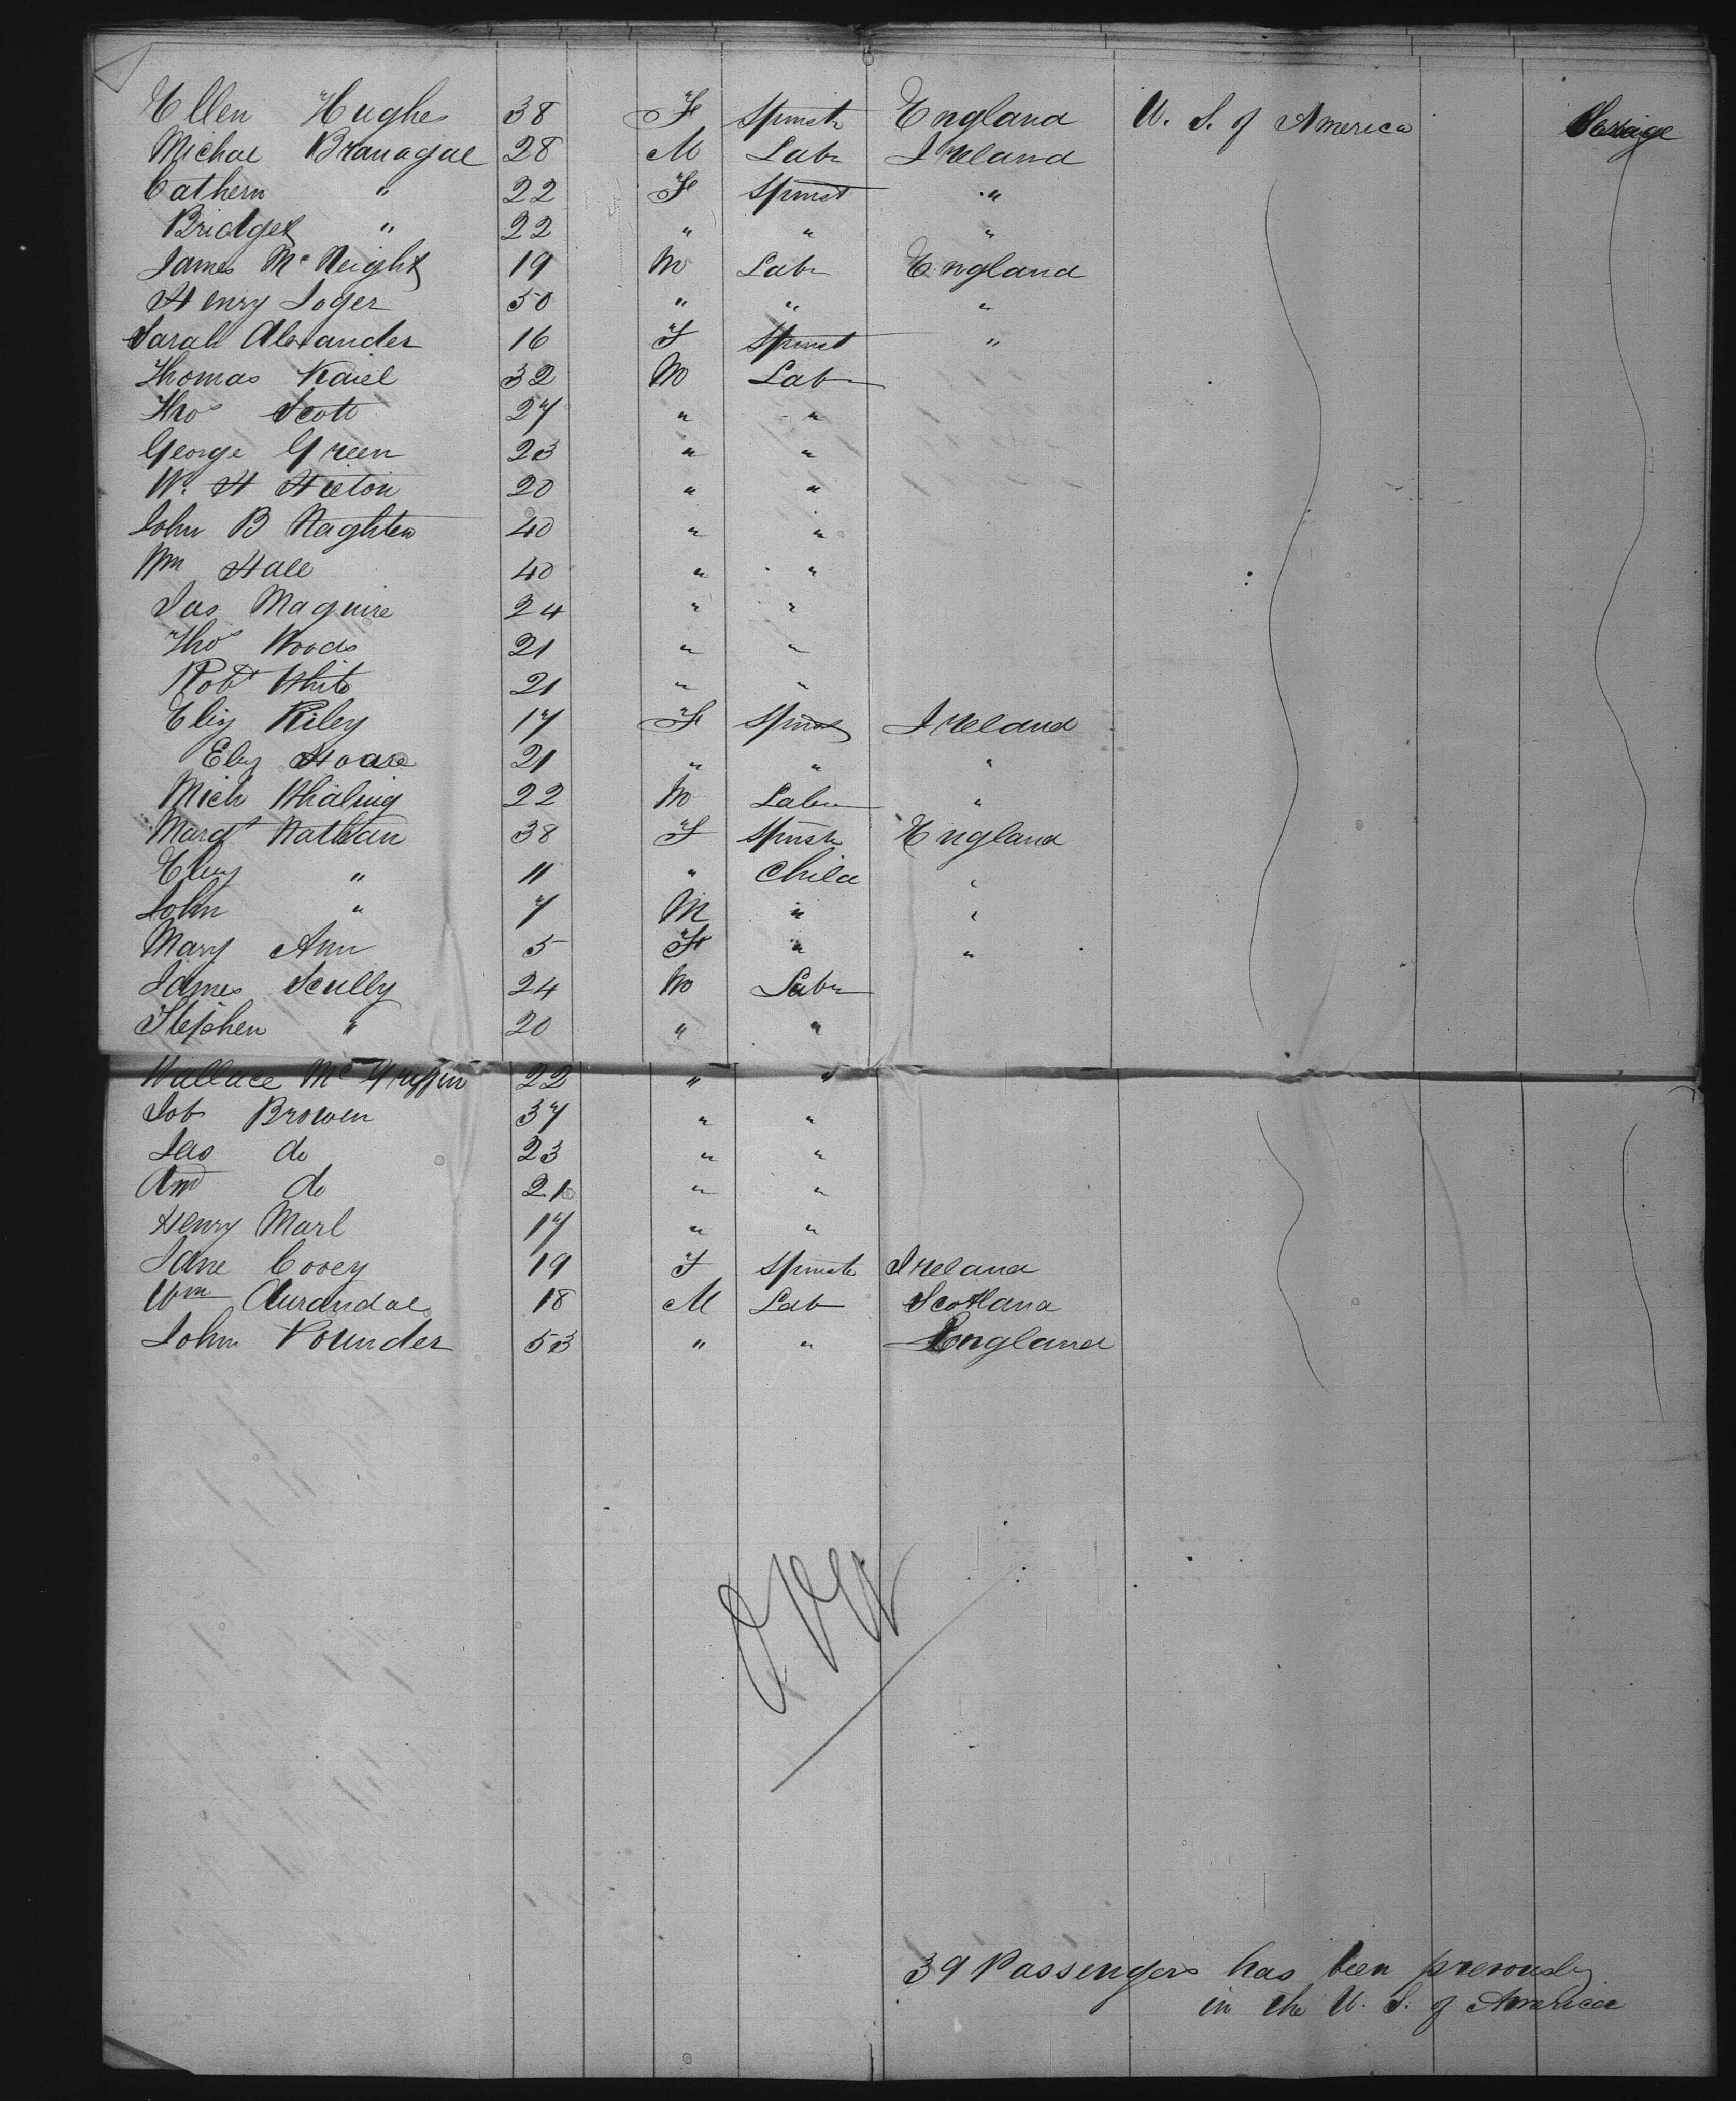 Ellen Hughes 38 F Spinstr England U. S. of America
Michae Branagae 28 M Labr Ireland
Cathern " 22 F Spinst "
Bridget " 22 " " "
James McNeight 19 M Labr England
Henry Loger 50 " " "
Sarah Alexander 16 F Spinst "
Thomas 32 M Labr
Thos Scott 27 " "
George Green 23 " "
W. H 20 " "
John B Naghten 40 " "
Wm Hall 40 " "
Jas Maguire 24 " "
Thos Woods 21 " "
Robt White 21 " "
Eliz Riley 17 F Spinst Ireland
Eliz Hoare 21 " " "
Mich Whaling 22 M Labr "
Margt Nathan 38 F Spinstr England
Eliz " 11 " Child "
John " 7 M " "
Mary Ann 5 F " "
James Scully 24 M Labr
Stephen " 20 " "
Wallace Mc 22 " "
Job Browen 37 " "
Jas do 23 " "
do 21 " "
Henry Marl 17 " "
Jane Covey 19 F Spinstr Ireland
Wm 18 M Lab Scotland
John Pounder 53 " " England
39 Passengers has been previously
in the U. S. of America